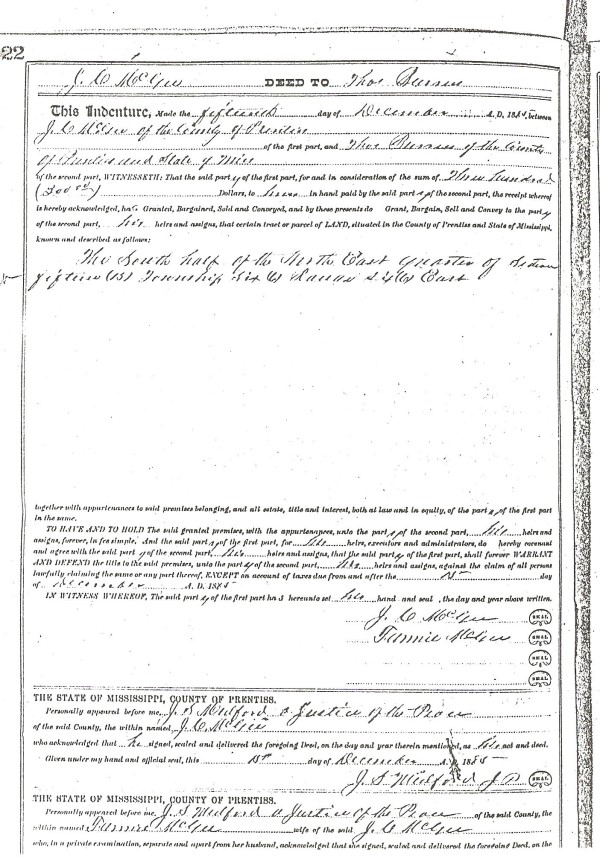 22
J. C. McGee DEED TO Thos Burress
This Indenture, Made the fifteenth day of December A. D. 1885, between
J. C. McGee of the County of Prentiss
of the first part, and Thos Burress of the County
of Prentiss and State of Miss
of the second part, WITNESSETH: That the said party of the first part, for and in consideration of the sum of Three hundred
(300 00) Dollars, to in hand paid by the said part y of the second part, the receipt whereof
is hereby acknowledged, has Granted, Bargained, Sold and Conveyed, and by these presents do Grant, Bargain, Sell and Convey to the party
of the second part, his heirs and assigns, that certain tract or parcel of LAND, situated in the County of Prentiss and State of Mississippi,
known and described as follows:
The South half of the North East quarter of Section
fifteen (15) Township Six (6) Range Six (6) East
together with appurtenances to said premises belonging, and all estate, title and interest, both at law and in equity, of the part y of the first part
in the same.
TO HAVE AND TO HOLD The said granted premises, with the appurtenances, unto the part y of the second part, his heirs and
assigns, forever, in fee simple. And the said part y of the first part, for his heirs, executors and administrators, do hereby covenant
and agree with the said part y of the second part, his heirs and assigns, that the said party of the first part, shall forever WARRANT
AND DEFEND the title to the said premises, unto the part y of the second part, his heirs and assigns, against the claim of all persons
lawfully claiming the same or any part thereof, EXCEPT on account of taxes due from and after the 15th day
of December A. D. 1885
IN WITNESS WHEREOF, The said part y of the first part has hereunto set his hand and seal, the day and year above written.
J. C. McGee SEAL
Fannie McGee SEAL
SEAL
SEAL
THE STATE OF MISSISSIPPI, COUNTY OF PRENTISS.
Personally appeared before me, J. S. Medford a Justice of the Peace
of the said County, the within named J. C. McGee
who acknowledged that he signed, sealed and delivered the foregoing Deed, on the day and year therein mentioned, as his act and deed.
Given under my hand and official seal, this 15th day of December A. D. 1885
J. S. Medford J. P. SEAL
THE STATE OF MISSISSIPPI, COUNTY OF PRENTISS.
Personally appeared before me, J. S. Medford a Justice of the Peace of the said County, the
within named Fannie McGee wife of the said J. C. McGee
who, in a private examination, separate and apart from her husband, acknowledged that she signed, sealed and delivered the foregoing Deed, on the